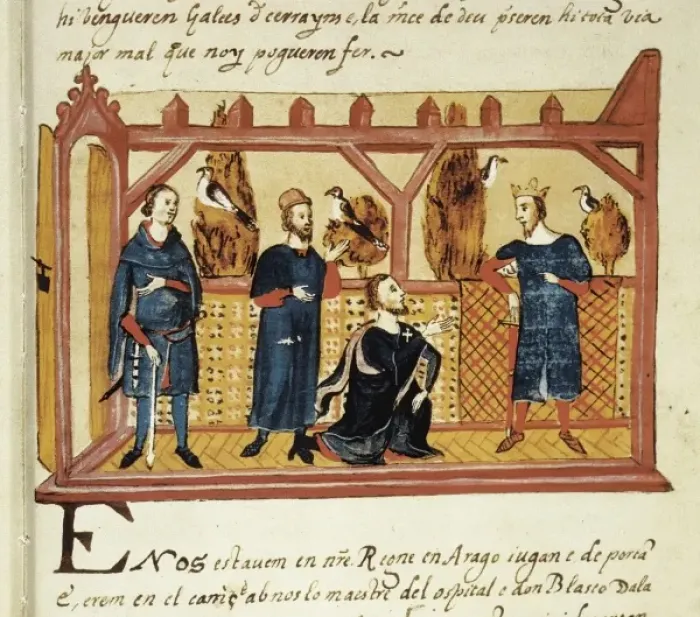 hi vengueren Galees d̄ cerrayns e, la m̄ce de deu p̄seren hi tota via
major mal que noy pogueren fer.~
E NOS estavem en nr̄e. Regne en Arago iugan e de porta
e, erem en el ab nos lo maestre del ospital e don Blasco Dala